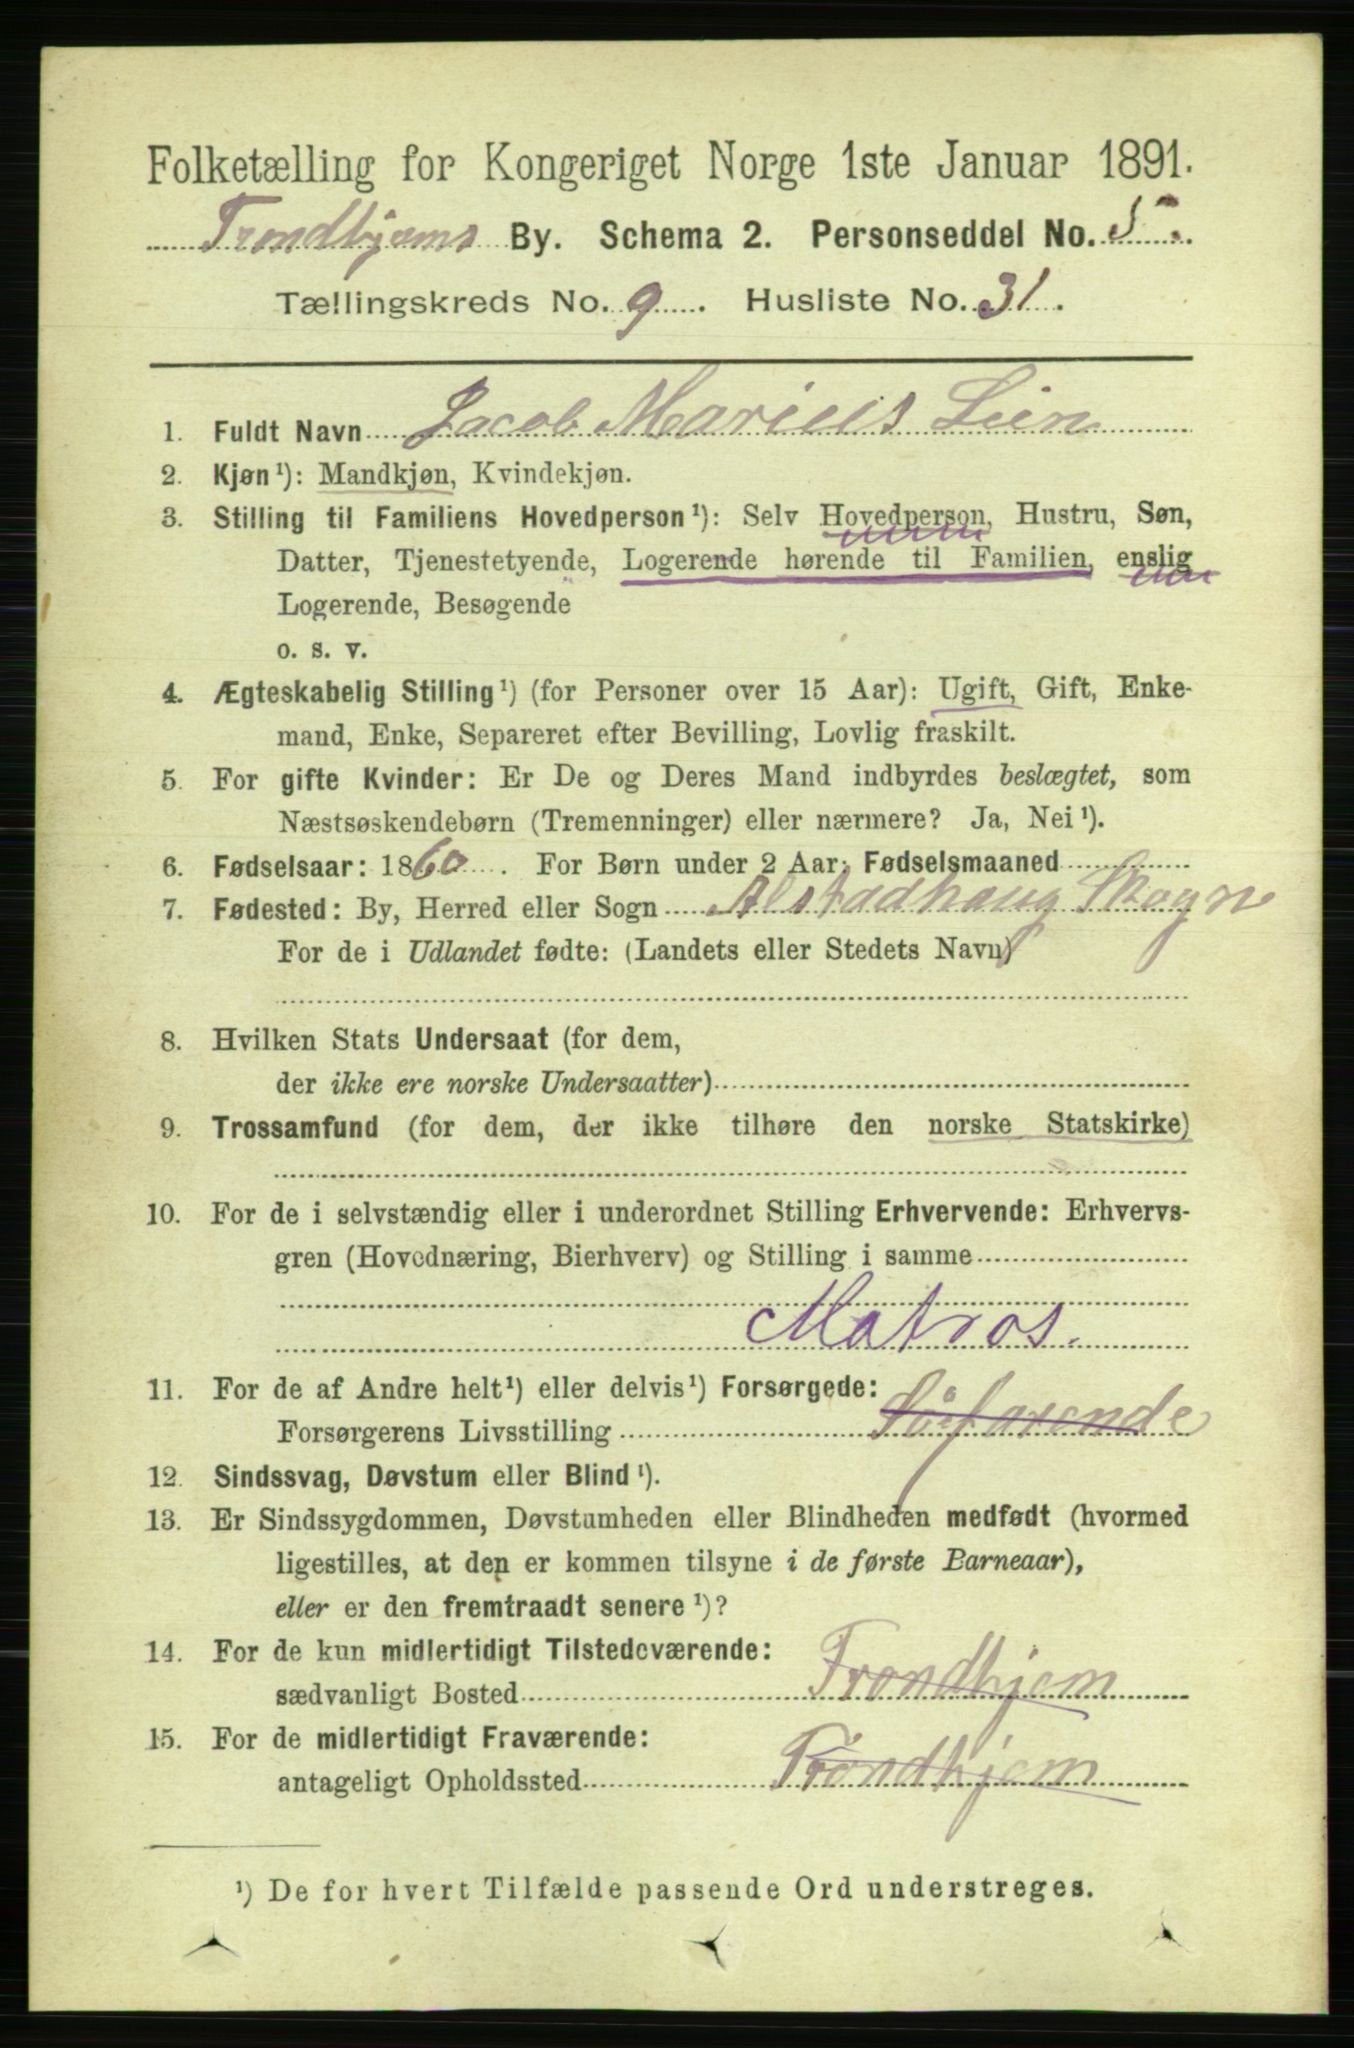 Folketælling for Kongeriget Norge 1ste Januar 1891.
Trondhjems By. Schema 2. Personseddel No. 5.
Tællingskreds No. 9. Husliste No. 31.
1. Fuldt Navn Jacob Marius Lien
2. Kjøn¹): Mandkjøn, Kvindekjøn.
3. Stilling til Familiens Hovedperson¹): Selv Hovedperson, Hustru, Søn,
Datter, Tjenestetyende, Logerende hørende til Familien, enslig
Logerende, Besøgende
o. s. v.
4. Ægteskabelig Stilling¹) (for Personer over 15 Aar): Ugift, Gift, Enke-
mand, Enke, Separeret efter Bevilling, Lovlig fraskilt.
5. For gifte Kvinder: Er De og Deres Mand indbyrdes beslægtet, som
Næstsøskendebørn (Tremenninger) eller nærmere? Ja, Nei¹).
6. Fødselsaar: 1860. For Børn under 2 Aar: Fødselsmaaned
7. Fødested: By, Herred eller Sogn Alstadhaug Skogn
For de i Udlandet fødte: (Landets eller Stedets Navn)
8. Hvilken Stats Undersaat (for dem,
der ikke ere norske Undersaatter)
9. Trossamfund (for dem, der ikke tilhøre den norske Statskirke)
10. For de i selvstændig eller i underordnet Stilling Erhvervende: Erhvervs-
gren (Hovednæring, Bierhverv) og Stilling i samme
Matros.
11. For de af Andre helt¹) eller delvis¹) Forsørgede:
Forsørgerens Livsstilling Söefarende
12. Sindssvag, Døvstum eller Blind¹).
13. Er Sindssygdommen, Døvstumheden eller Blindheden medfødt (hvormed
ligestilles, at den er kommen tilsyne i de første Barneaar),
eller er den fremtraadt senere¹)?
14. For de kun midlertidigt Tilstedeværende:
sædvanligt Bosted Trondhjem
15. For de midlertidigt Fraværende:
antageligt Opholdssted Trondhjem
¹) De for hvert Tilfælde passende Ord understreges.